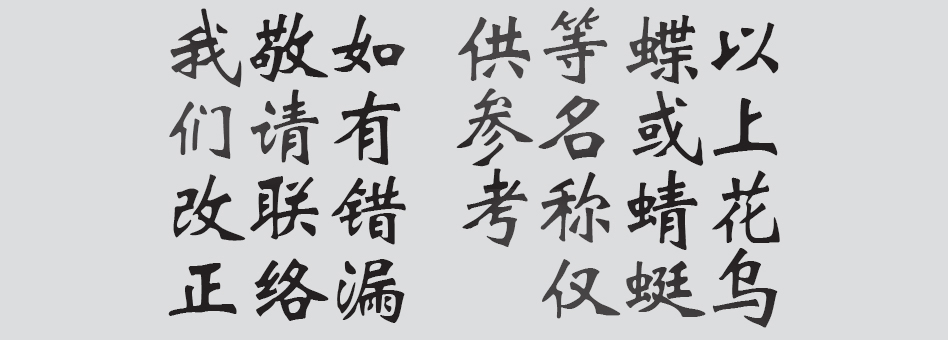 以上花乌
蝶或蜻蜓
等名称仅
供参考
如有错漏
敬请联络
我们改正